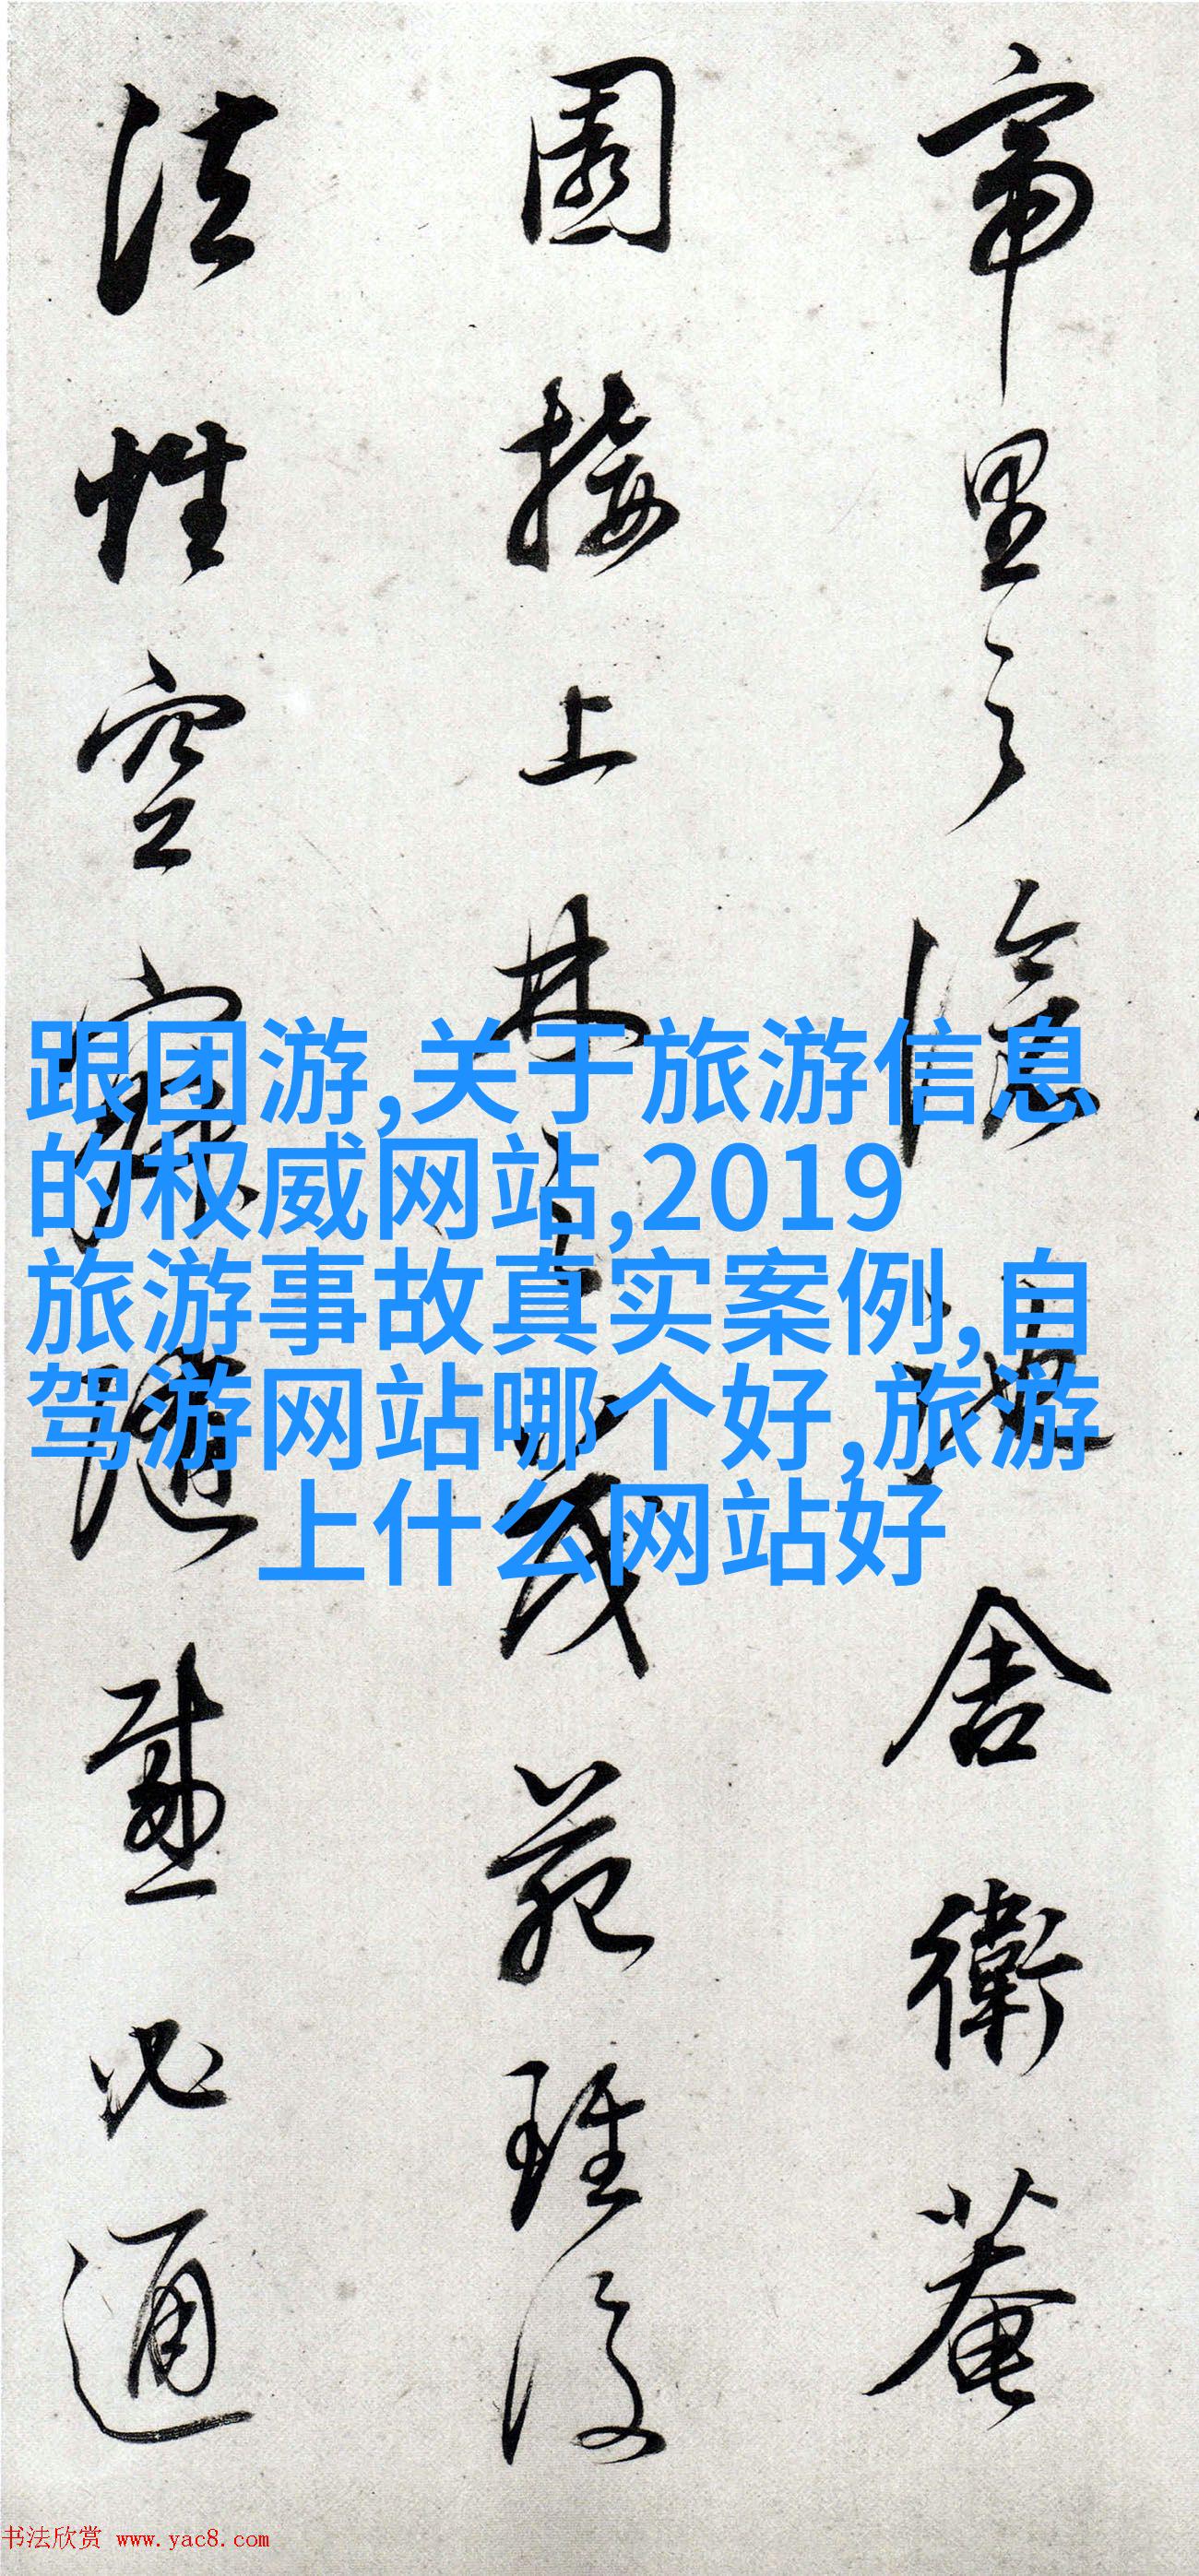 帝里之陰舍衛菴
園接上林之茂苑雖復
法性空寂隨感必通
跟团游,关于旅游信息
的权威网站,2019
旅游事故真实案例,自
驾游网站哪个好,旅游
上什么网站好
书法欣赏 www.yac8.com